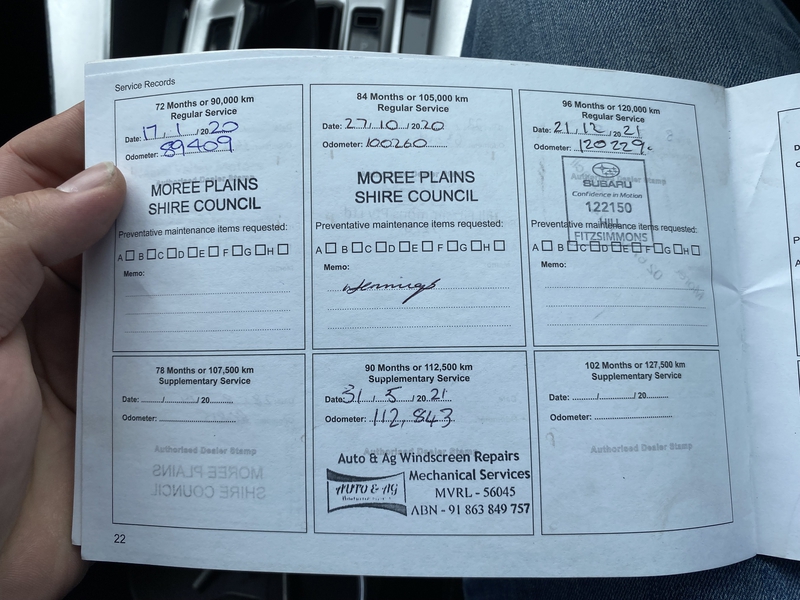 Service Records
72 Months or 90,000 km
Regular Service
Date: 17 / 1 / 20 20
Odometer: 89409
MOREE PLAINS
SHIRE COUNCIL
Preventative maintenance items requested:
A B C D E F G H
Memo:
84 Months or 105,000 km
Regular Service
Date: 27 / 10 / 20 20
Odometer: 100260
MOREE PLAINS
SHIRE COUNCIL
Preventative maintenance items requested:
A B C D E F G H
Memo:
96 Months or 120,000 km
Regular Service
Date: 21 / 12 / 20 21
Odometer: 120229
Authorised Dealer Stamp
SUBARU
Confidence in Motion
122150
HILL
FITZSIMMONS
Preventative maintenance items requested:
A B C D E F G H
Memo:
78 Months or 107,500 km
Supplementary Service
Date: ......../......../ 20........
Odometer:
Authorised Dealer Stamp
MOREE PLAINS
SHIRE COUNCIL
90 Months or 112,500 km
Supplementary Service
Date: 31 / 5 / 20 21
Odometer: 112,843
Auto & Ag Windscreen Repairs
Mechanical Services
AUTO & AG
MVRL - 56045
ABN - 91 863 849 757
102 Months or 127,500 km
Supplementary Service
Date: ......../......../ 20........
Odometer:
Authorised Dealer Stamp
22